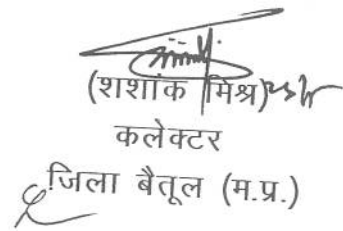 (शशांक मिश्र)
कलेक्टर
जिला बैतूल (म.प्र.)